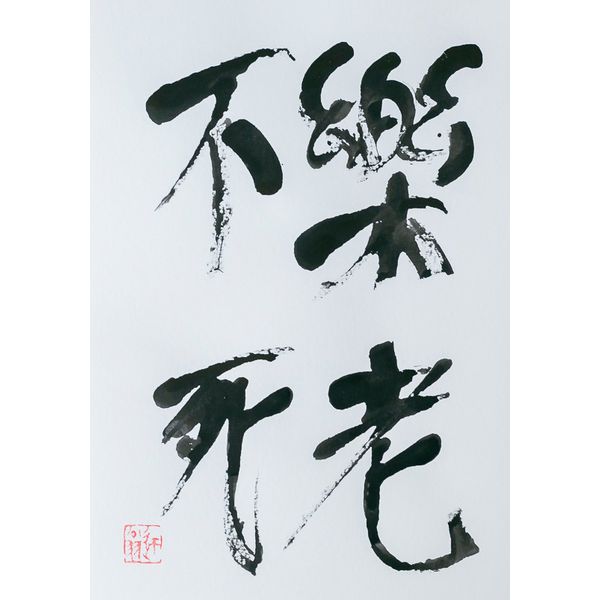 樂老
不死